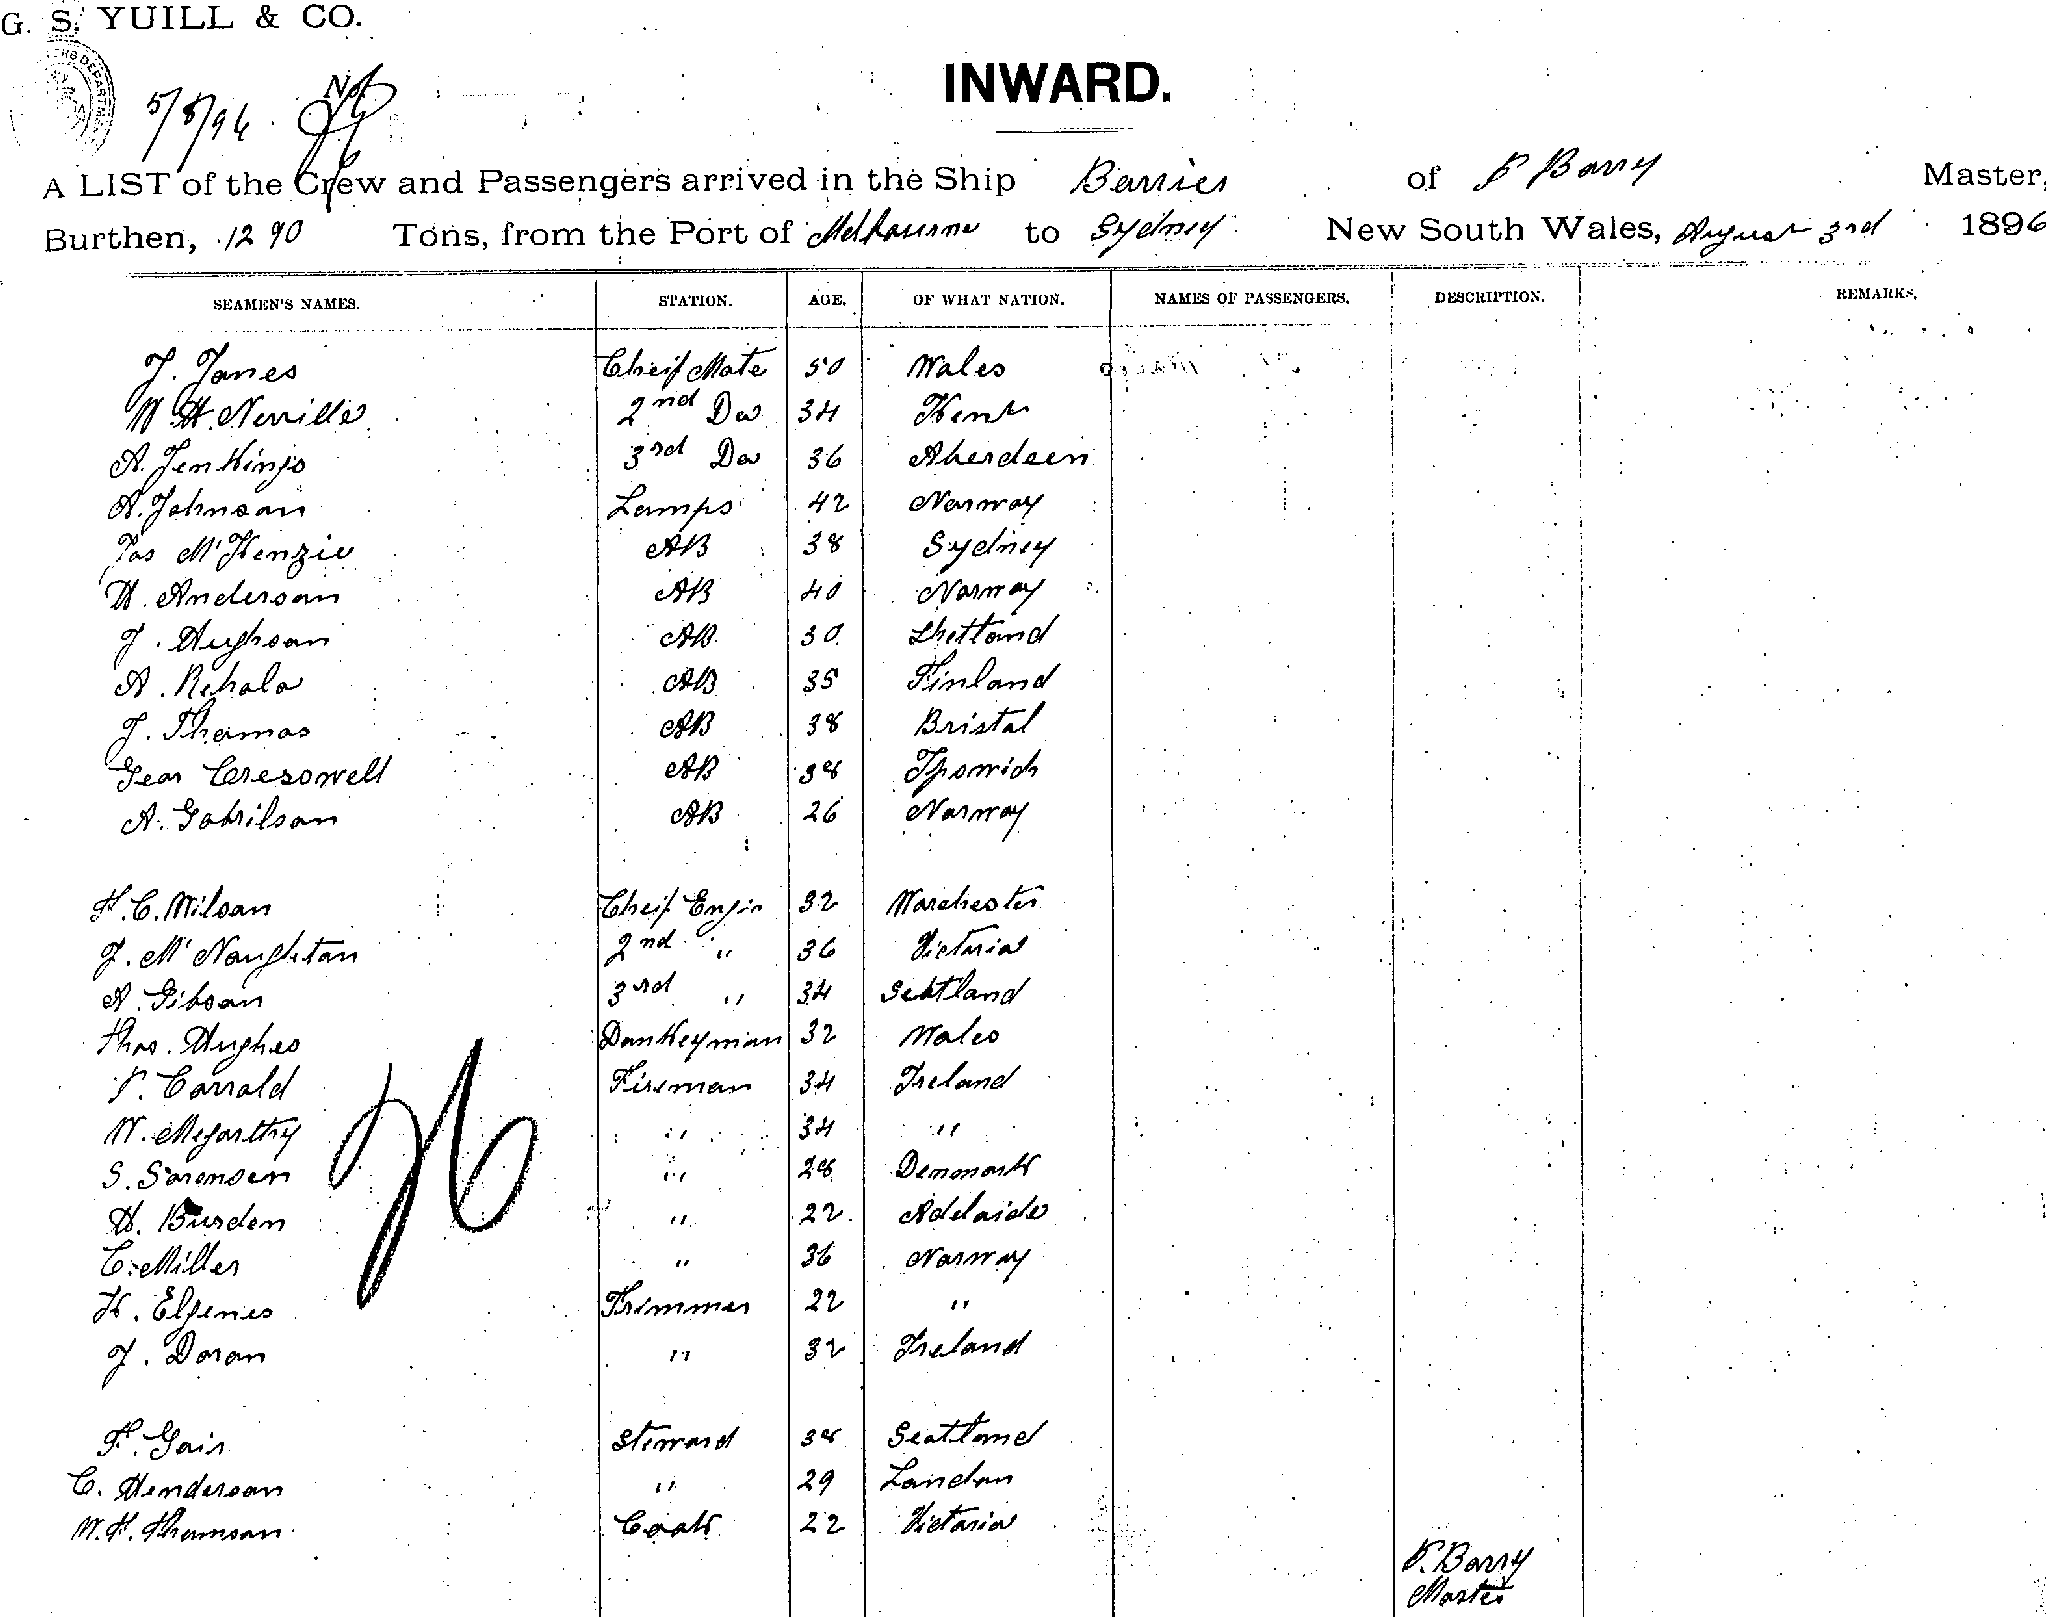 G. S. YUILL & CO.
INWARD.
5/8/96
A LIST of the Crew and Passengers arrived in the Ship Barrier of P Barry Master,
Burthen, 1290 Tons, from the Port of Melbourne to Sydney New South Wales, August 3rd 1896
SEAMEN'S NAMES. STATION. AGE. OF WHAT NATION. NAMES OF PASSENGERS. DESCRIPTION. REMARKS.
J. Jones Cheif Mate 50 Wales
W. H. Neville 2nd Do 34 Kent
A. Jenkings 3rd Do 36 Aberdeen
A. Johnson Lamps 42 Norway
Jas McKenzie AB 38 Sydney
H. Anderson AB 40 Norway
J. Hughson AB 30 Shetland
A. Rehola AB 35 Finland
J. Thomas AB 38 Bristol
Geor Cresswell AB 38 Ipswich
A. Gabrilson AB 26 Norway
F. C. Wilson Cheif Engin 32 Manchester
J. McNaughton 2nd " 36 Victoria
A. Gibson 3rd " 34 Scotland
Thos. Hughes Donkeyman 32 Wales
P. Carrold Fireman 34 Ireland
W. Megarthy " 34 "
S. Sorensen " 28 Denmark
H. Burden " 22 Adelaide
C. Miller " 36 Norway
K. Elgenes Trimmer 22 "
J. Doran " 32 Ireland
F. Gair Steward 38 Scotland
C. Henderson " 29 London
W. F. Thomson Cook 22 Victoria
P. Barry
Master